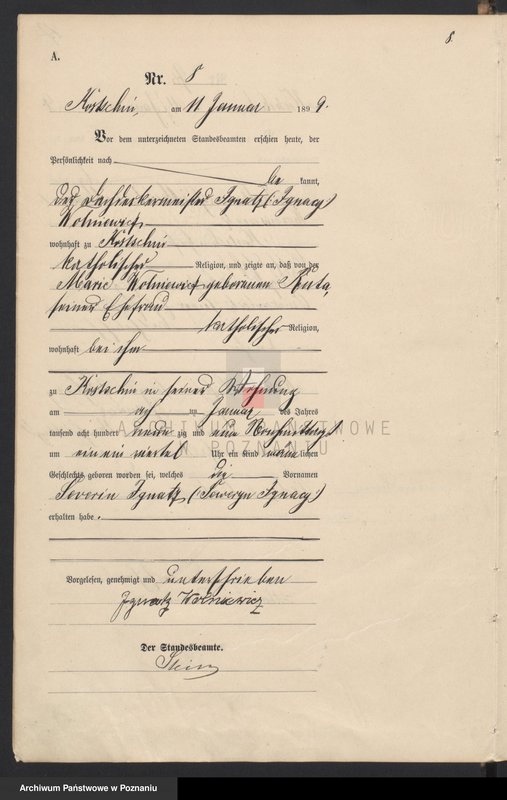 8
A.
Nr. 8
Kostschin, am 11 Januar 1899.
Vor dem unterzeichneten Standesbeamten erschien heute, der
Persönlichkeit nach
be kannt,
der Ignatz (Ignacy)
Wolniewicz
wohnhaft zu Kostschin
katholischer Religion, und zeigte an, daß von der
Marie Wolniewicz geborenen Ruta,
seiner Ehefrau
katholischer Religion,
wohnhaft bei ihm
zu Kostschin in seiner Wohnung
am Januar des Jahres
tausend acht hundert neun zig und neun Vormittags
um ein ein viertel Uhr ein Kind männlichen
Geschlechts geboren worden sei, welches die Vornamen
Severin Ignatz (Seweryn Ignacy)
erhalten habe.
Vorgelesen, genehmigt und unterschrieben
Ignatz Wolniewicz
Der Standesbeamte.
ARCHIWUM PAŃSTWOWE
W POZNANIU
Archiwum Państwowe w Poznaniu